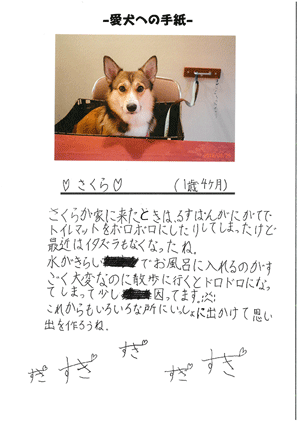 -愛犬への手紙-
♡さくら♡ (1歳4ヶ月)
さくらが家に来たときは、るすばんがにがてで
トイレマットをボロボロにしたりしてしまったけど
最近はイタズラもなくなったね。
水がきらいでお風呂に入れるのがす
ごく大変なのに散歩に行くとドロドロになっ
てしまって少し困ってます。
これからもいろいろな所にいっしょに出かけて思い
出を作ろうね。
すき♡ すき♡ すき♡ すき♡ すき♡